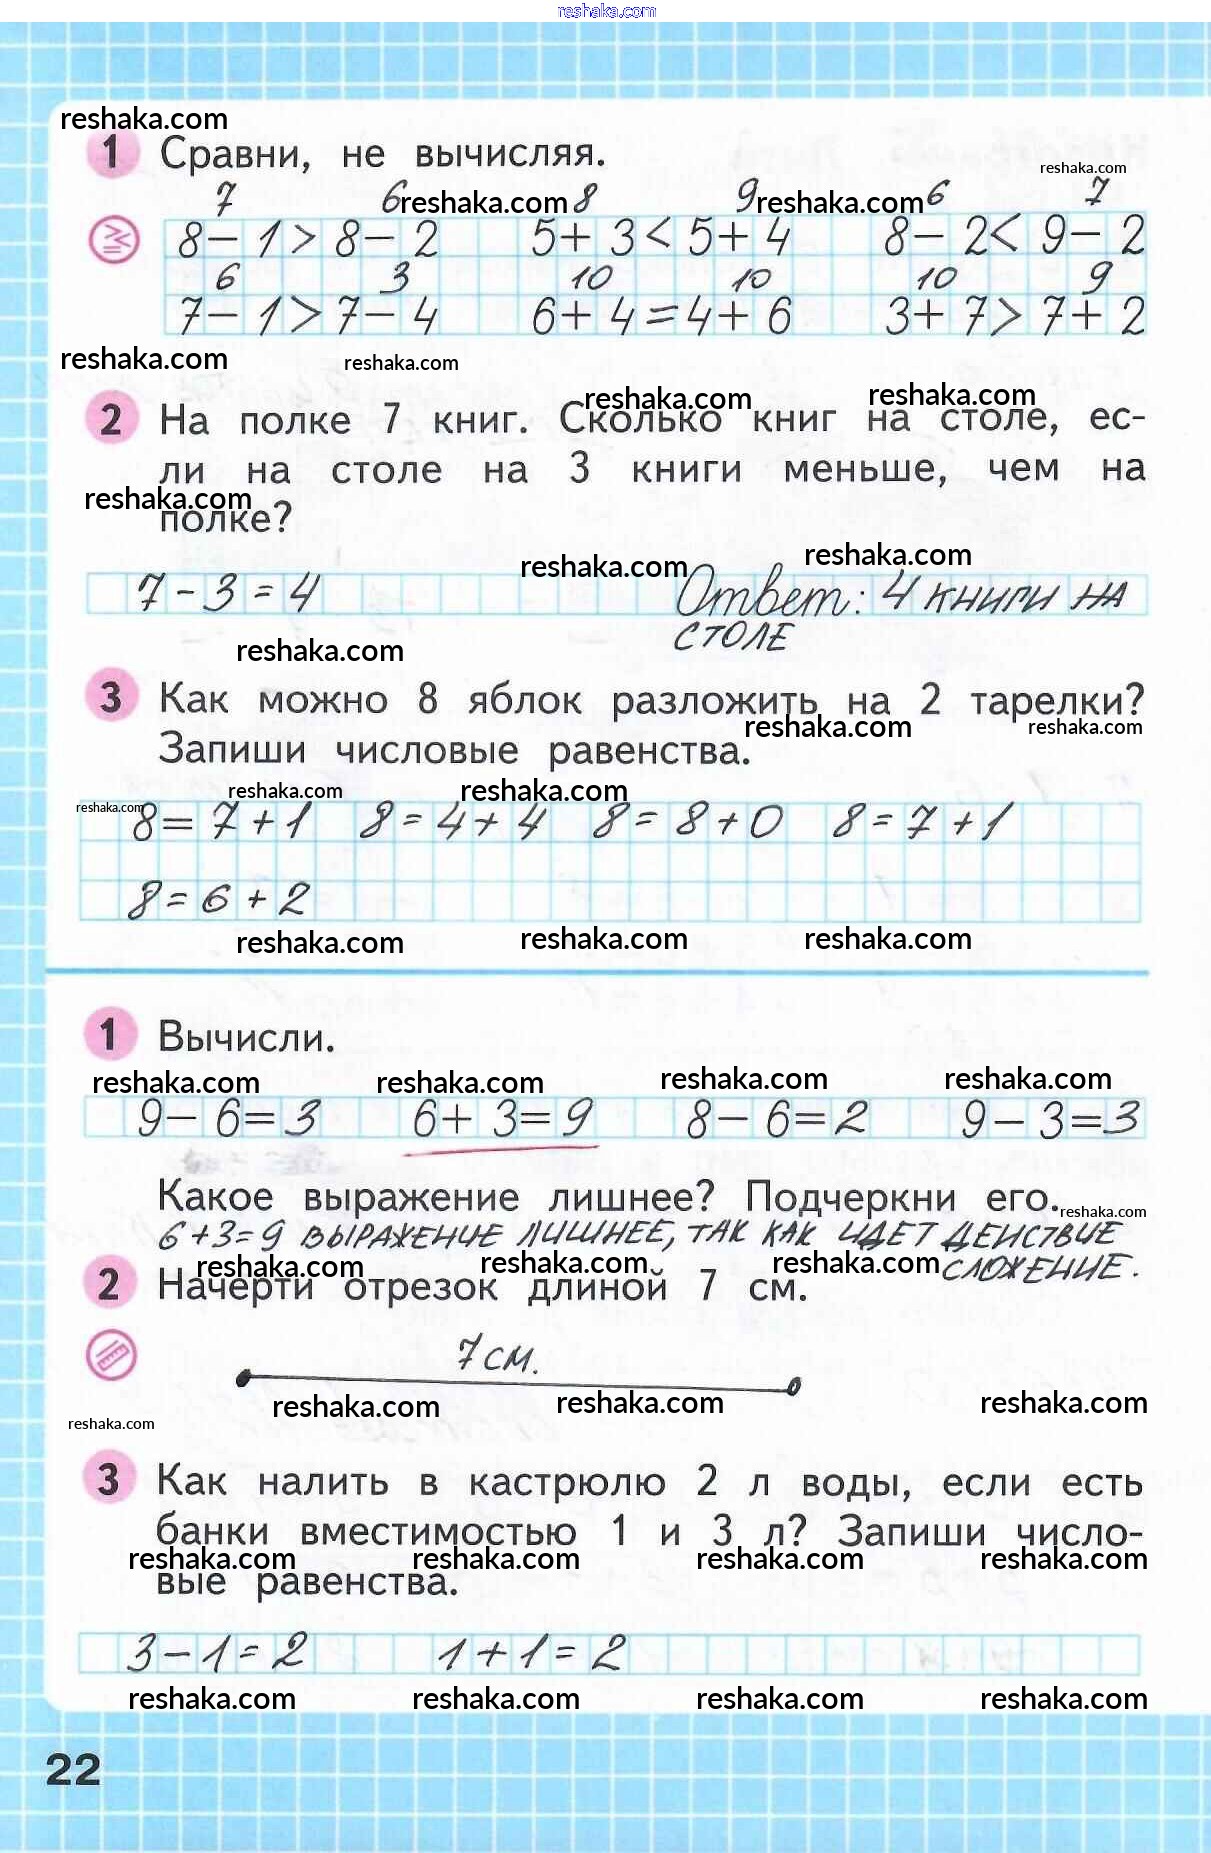 reshaka.com
reshaka.com
1 Сравни, не вычисляя.
reshaka.com
7 6 reshaka.com 8 9 reshaka.com 6 7
8 - 1 > 8 - 2 5 + 3 < 5 + 4 8 - 2 < 9 - 2
6 3 10 10 10 9
7 - 1 > 7 - 4 6 + 4 = 4 + 6 3 + 7 > 7 + 2
reshaka.com reshaka.com
reshaka.com reshaka.com
2 На полке 7 книг. Сколько книг на столе, ес-
ли на столе на 3 книги меньше, чем на
reshaka.com
полке?
reshaka.com reshaka.com
7 - 3 = 4 Ответ: 4 книги на
столе
reshaka.com
3 Как можно 8 яблок разложить на 2 тарелки?
reshaka.com reshaka.com
Запиши числовые равенства.
reshaka.com reshaka.com reshaka.com
8 = 7 + 1 8 = 4 + 4 8 = 8 + 0 8 = 7 + 1
8 = 6 + 2
reshaka.com reshaka.com reshaka.com
1 Вычисли.
reshaka.com reshaka.com reshaka.com reshaka.com
9 - 6 = 3 6 + 3 = 9 8 - 6 = 2 9 - 3 = 3
Какое выражение лишнее? Подчеркни его.
reshaka.com
6 + 3 = 9 выражение лишнее, так как идет действие
сложение.
reshaka.com reshaka.com reshaka.com
2 Начерти отрезок длиной 7 см.
7 см.
reshaka.com reshaka.com reshaka.com
reshaka.com
3 Как налить в кастрюлю 2 л воды, если есть
банки вместимостью 1 и 3 л? Запиши число-
reshaka.com reshaka.com reshaka.com reshaka.com
вые равенства.
3 - 1 = 2 1 + 1 = 2
reshaka.com reshaka.com reshaka.com reshaka.com
22